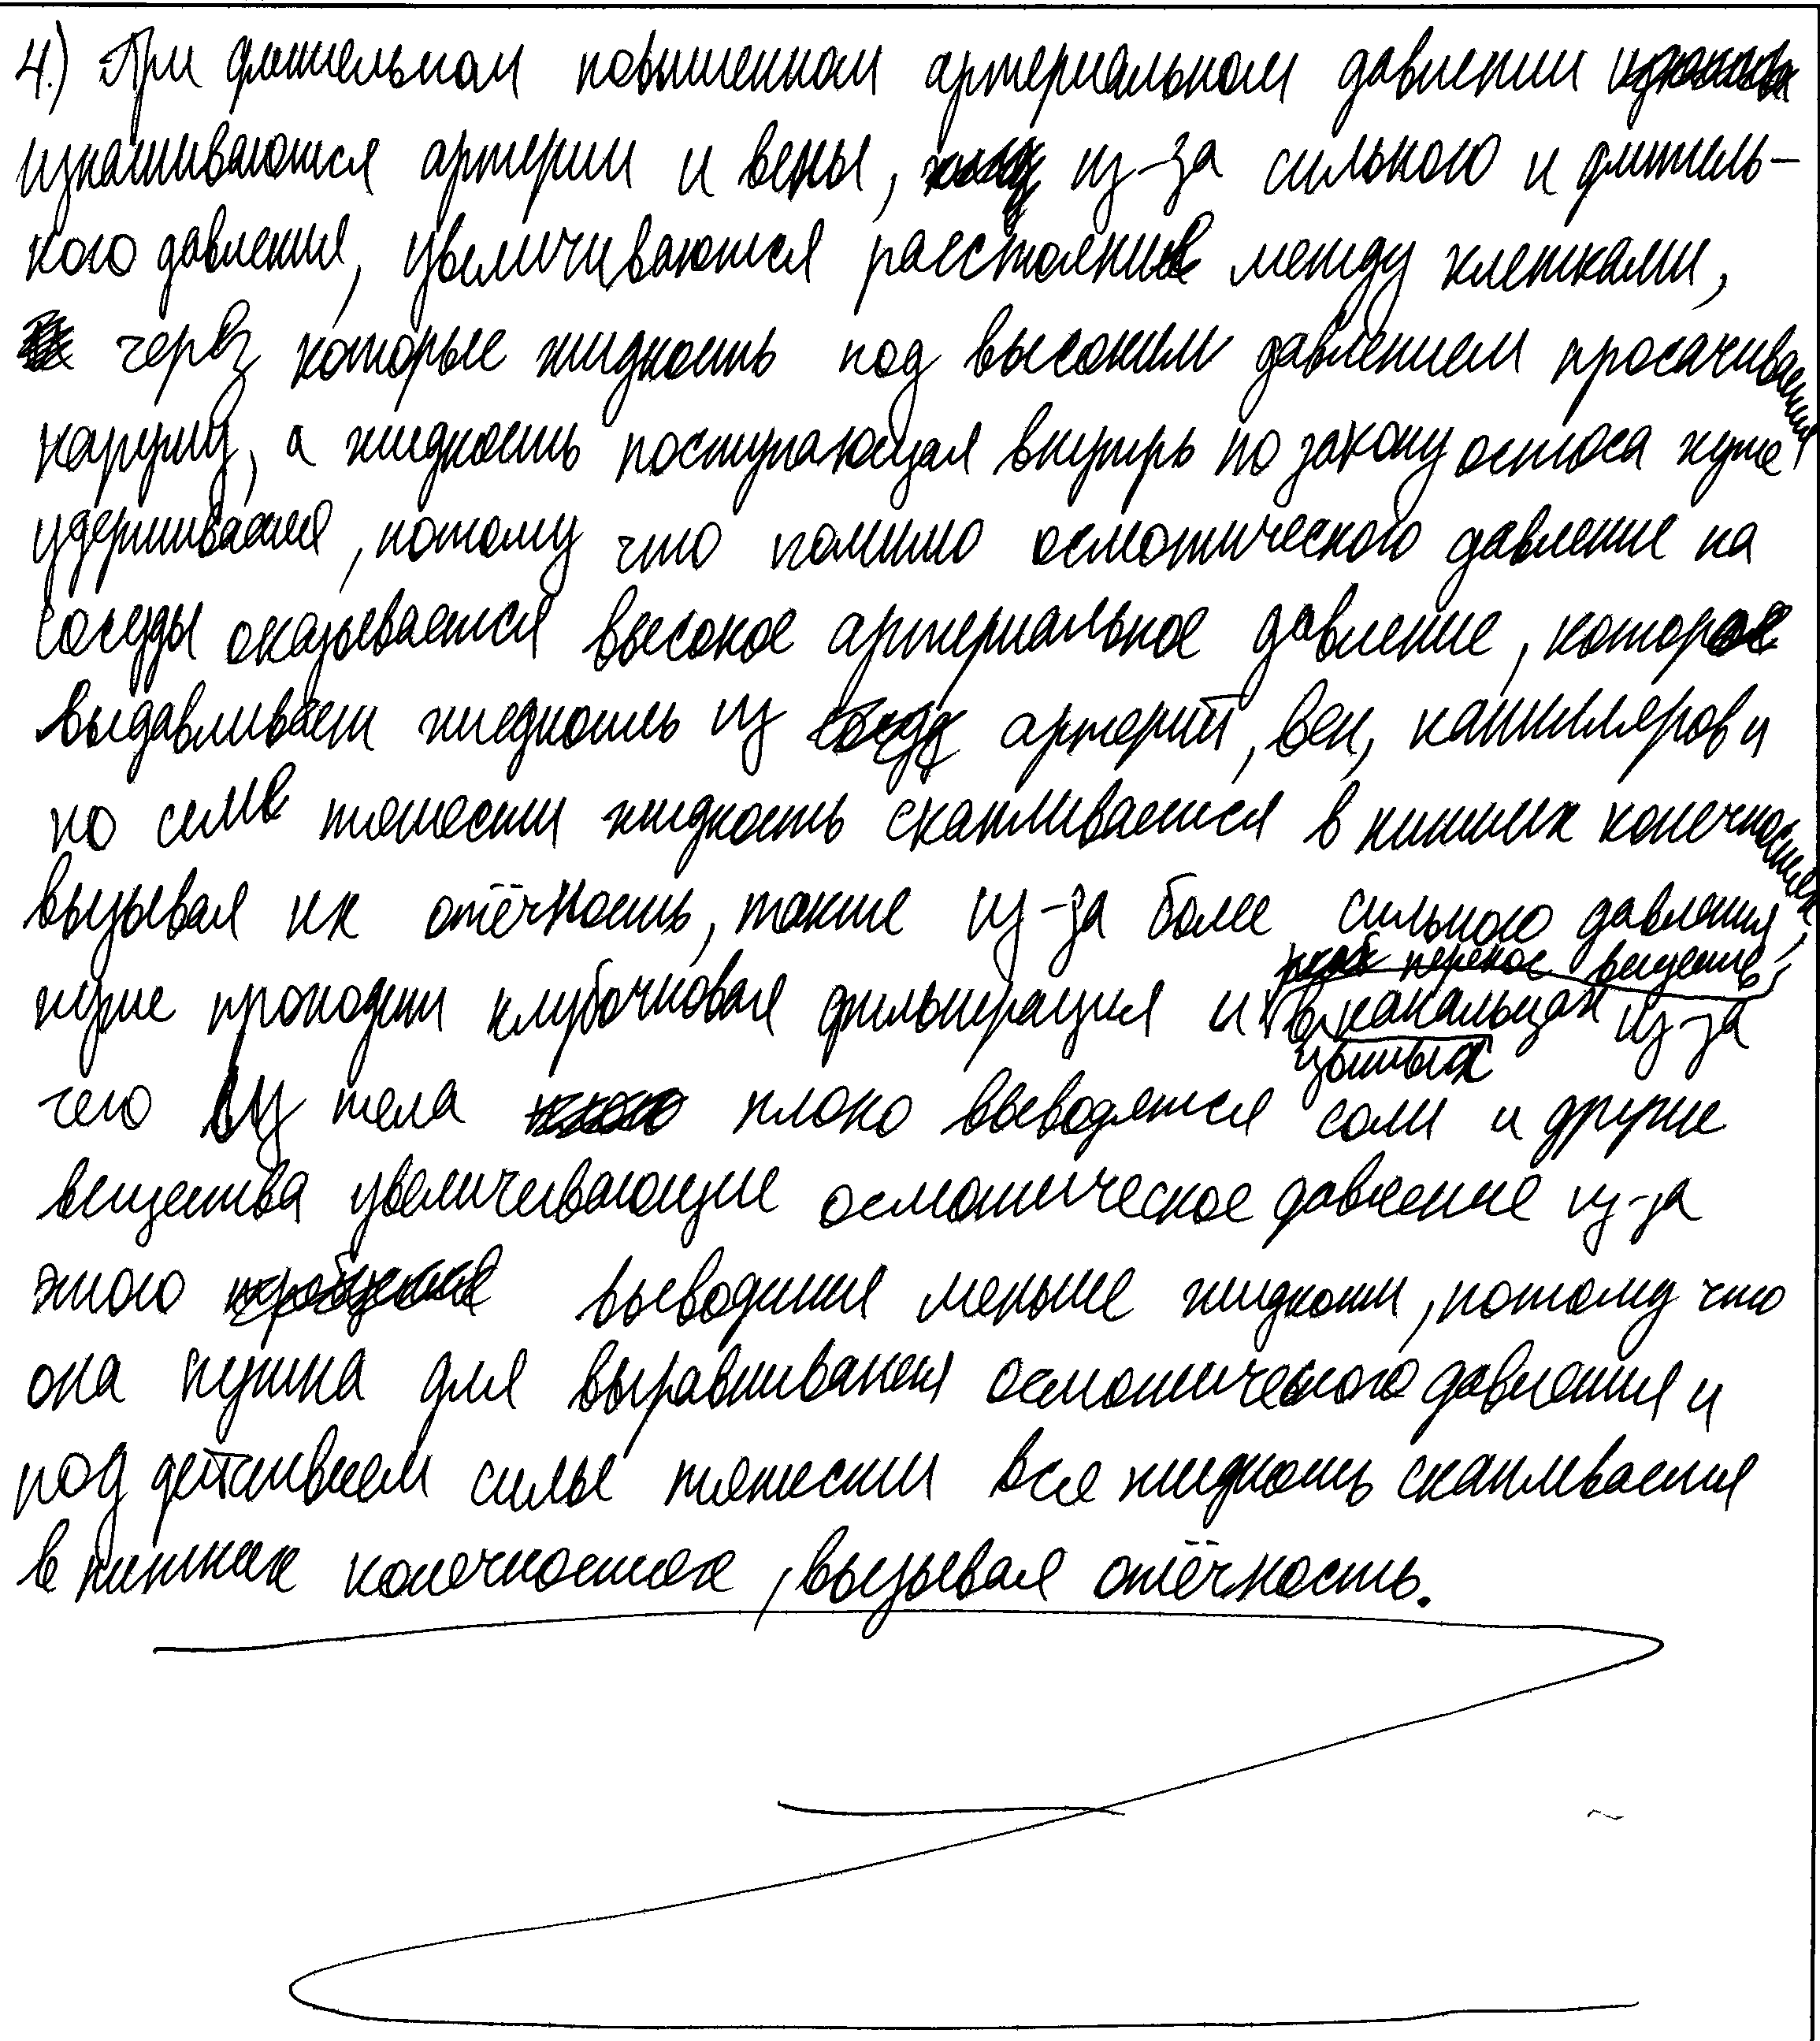 4.) При длительном повышенном артериальном давлении
изнашиваются артерии и вены, из-за сильного и длитель-
ного давления, увеличиваются расстояние между клетками,
через которые жидкость под высоким давлением просачивается
наружу, а жидкость поступающая внутрь по закону осмоса хуже
удерживается, потому что помимо осмотического давление на
сосуды оказывается высокое артериальное давление, которое
выдавливает жидкость из артерий, вен, капилляров и
по силе тяжести жидкость скапливается в нижних конечностях,
вызывая их отёчность, также из-за более сильного давления,
перенос веществ
хуже проходит клубочковая фильтрация и в канальцах из-за
извитых
чего из тела плохо выводятся соли и другие
вещества увеличивающие осмотическое давление из-за
этого выводится меньше жидкости, потому что
она нужна для выравнивания осмотического давления и
под действием силы тяжести вся жидкость скапливается
в нижних конечностях, вызывая отёчность.